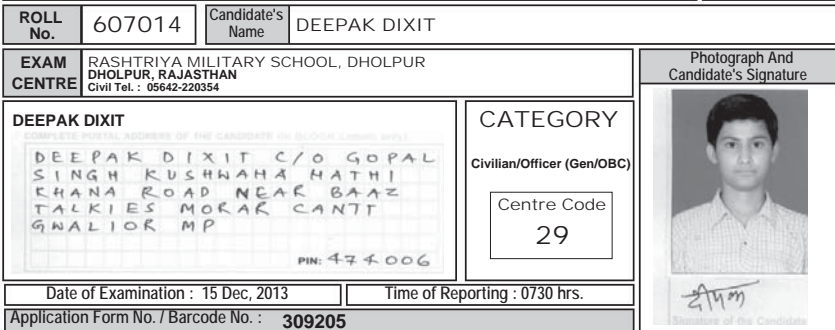 ROLL No. 607014 Candidate's Name DEEPAK DIXIT
EXAM CENTRE
RASHTRIYA MILITARY SCHOOL, DHOLPUR
DHOLPUR, RAJASTHAN
Civil Tel. : 05642-220354
Photograph And
Candidate's Signature
DEEPAK DIXIT
COMPLETE POSTAL ADDRESS OF THE CANDIDATE (in BLOCK Letters only)
DEEPAK DIXIT C/O GOPAL
SINGH KUSHWAHA HATHI
KHANA ROAD NEAR BAAZ
TALKIES MORAR CANTT
GWALIOR MP
PIN: 474006
CATEGORY
Civilian/Officer (Gen/OBC)
Centre Code
29
दीपक
Signature of the Candidate
Date of Examination : 15 Dec, 2013 Time of Reporting : 0730 hrs.
Application Form No. / Barcode No. : 309205